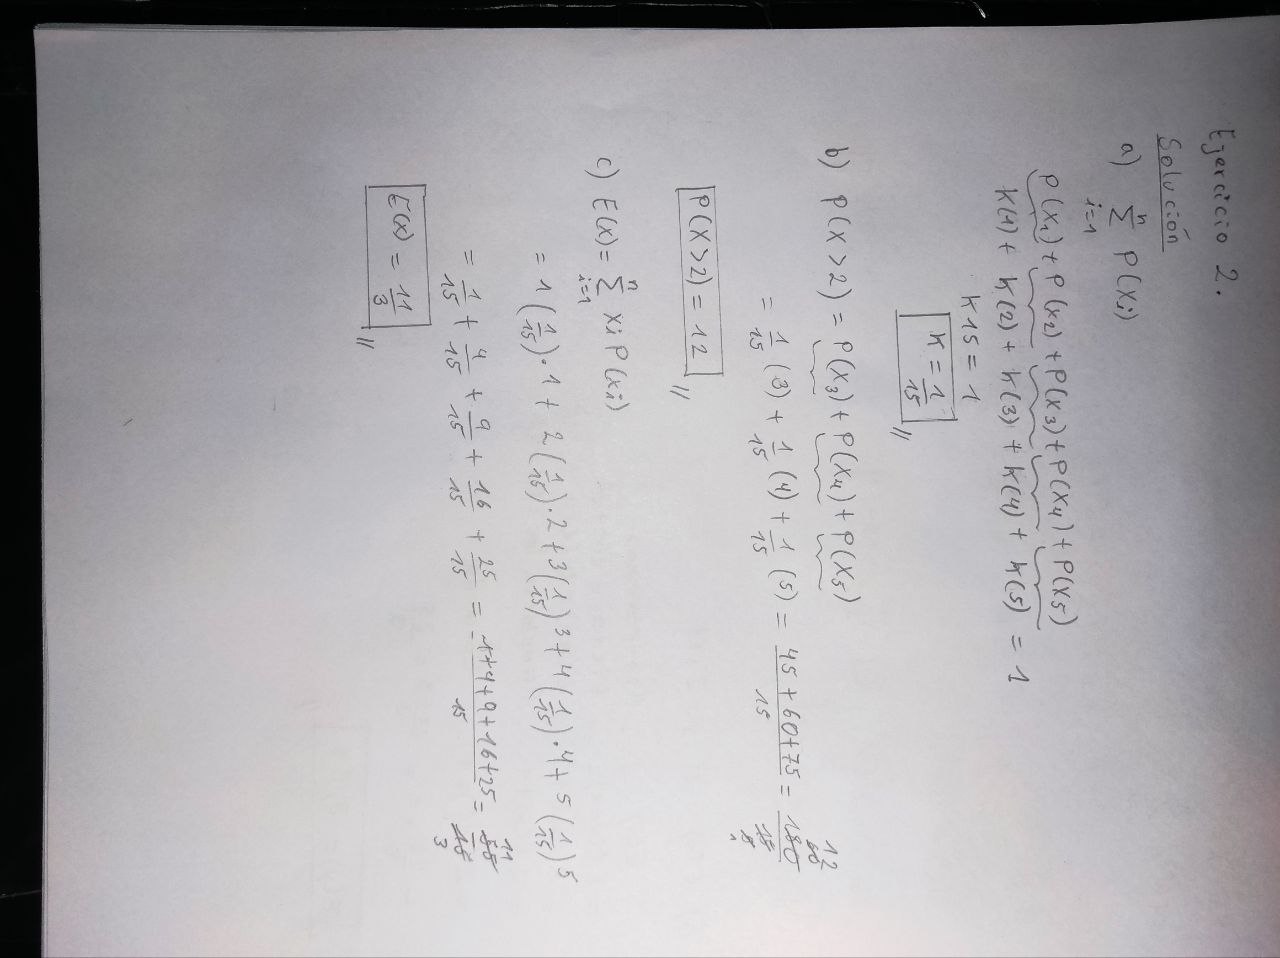 Ejercicio 2.
Solución
a) n Σ i=1 P(xi)
P(x1) + P(x2) + P(x3) + P(x4) + P(x5)
K(1) + K(2) + K(3) + K(4) + K(5) = 1
K15 = 1
K = 1/15 //
b) P(X>2) = P(X3) + P(X4) + P(X5)
= 1/15 (3) + 1/15 (4) + 1/15 (5) = 45 + 60 + 75 / 15 = 180/15 12
P(X>2) = 12 //
c) E(X) = n Σ i=1 Xi P(xi)
= 1 (1/15)·1 + 2 (1/15)·2 + 3 (1/15) 3 + 4 (1/15)·4 + 5 (1/15) 5
= 1/15 + 4/15 + 9/15 + 16/15 + 25/15 = 1+4+9+16+25 / 15 = 55/15 11 3
E(x) = 11/3 //